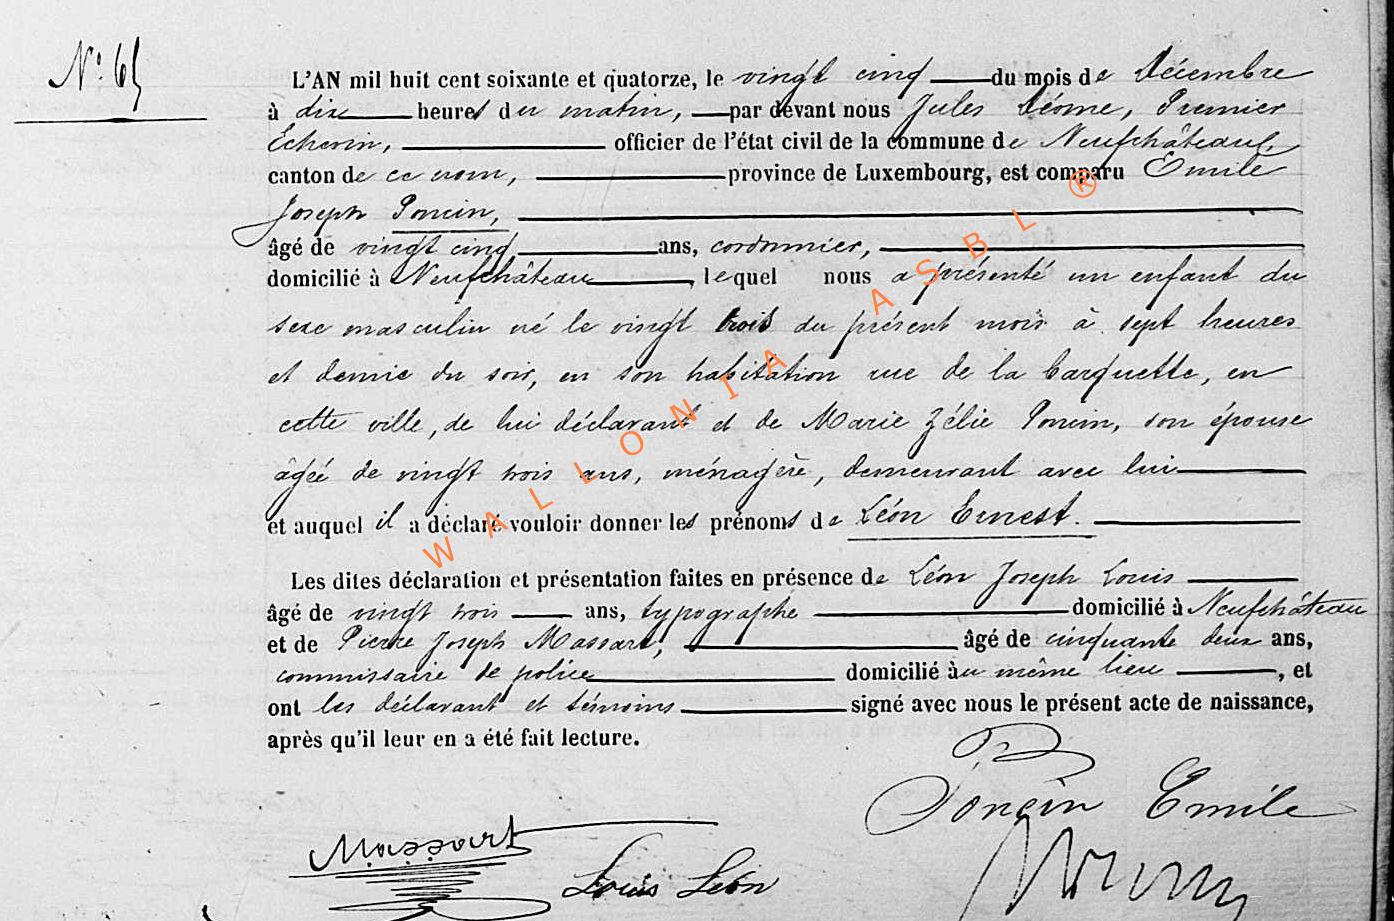 N° 65
L'AN mil huit cent soixante et quatorze, le vingt cinq du mois de Décembre
à dix heures du matin, par devant nous Jules Déome, Premier
Echevin, officier de l'état civil de la commune de Neufchâteau,
canton de ce nom, province de Luxembourg, est comparu Emile
Joseph Poncin,
âgé de vingt cinq ans, cordonnier,
domicilié à Neufchâteau, lequel nous a présenté un enfant du
sexe masculin né le vingt trois du présent mois à sept heures
et demie du soir, en son habitation rue de la barquette, en
cette ville, de lui déclarant et de Marie Zélie Poncin, son épouse
âgée de vingt trois ans, ménagère, demeurant avec lui
et auquel il a déclaré vouloir donner les prénoms de Léon Ernest.
Les dites déclaration et présentation faites en présence de Léon Joseph Louis
âgé de vingt trois ans, typographe domicilié à Neufchâteau
et de Pierre Joseph Massart, âgé de cinquante deux ans,
commissaire de police domicilié au même lieu, et
ont les déclarant et témoins signé avec nous le présent acte de naissance,
après qu'il leur en a été fait lecture.
Poncin Emile
Massart
Louis Léon
WALLONIA ASBL ®